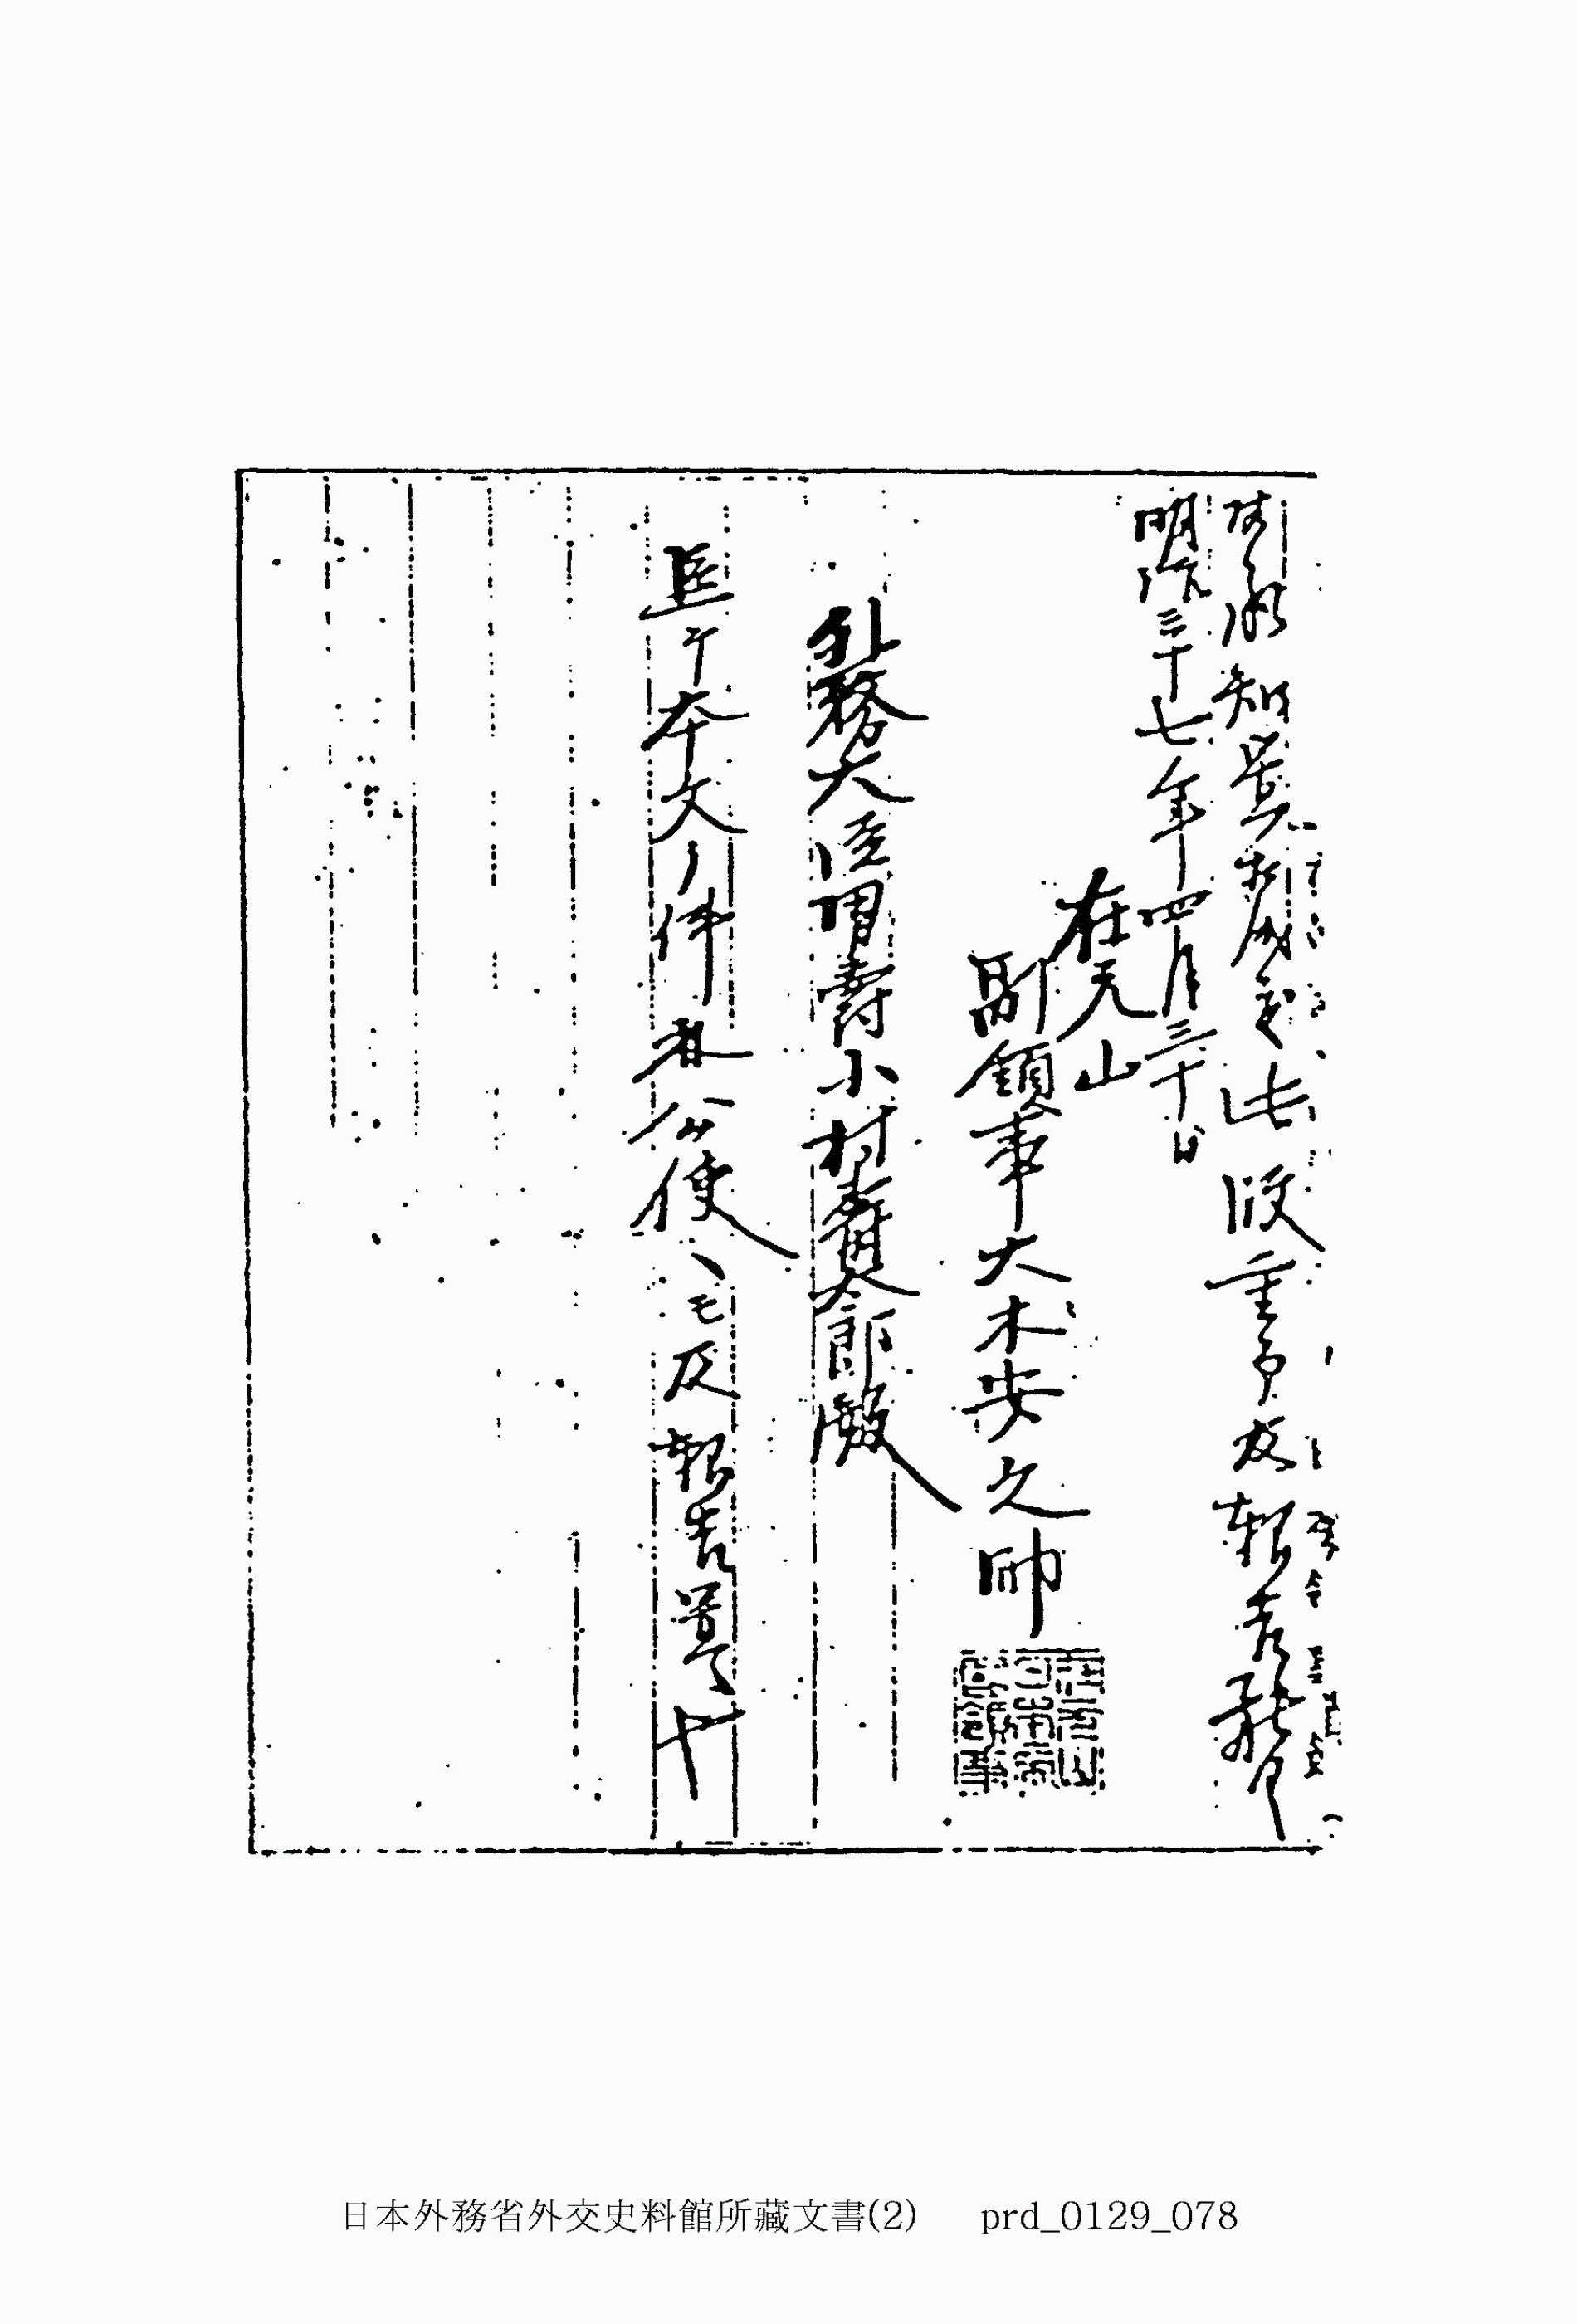 御承知置相成度此段重而及報告候也
明治三十七年四月三十日
在元山
副領事大木安之助
外務大臣男爵小村壽太郎殿
追テ本文ノ件林公使ヘモ及報告置候也
日本外務省外交史料館所藏文書(2) prd_0129_078